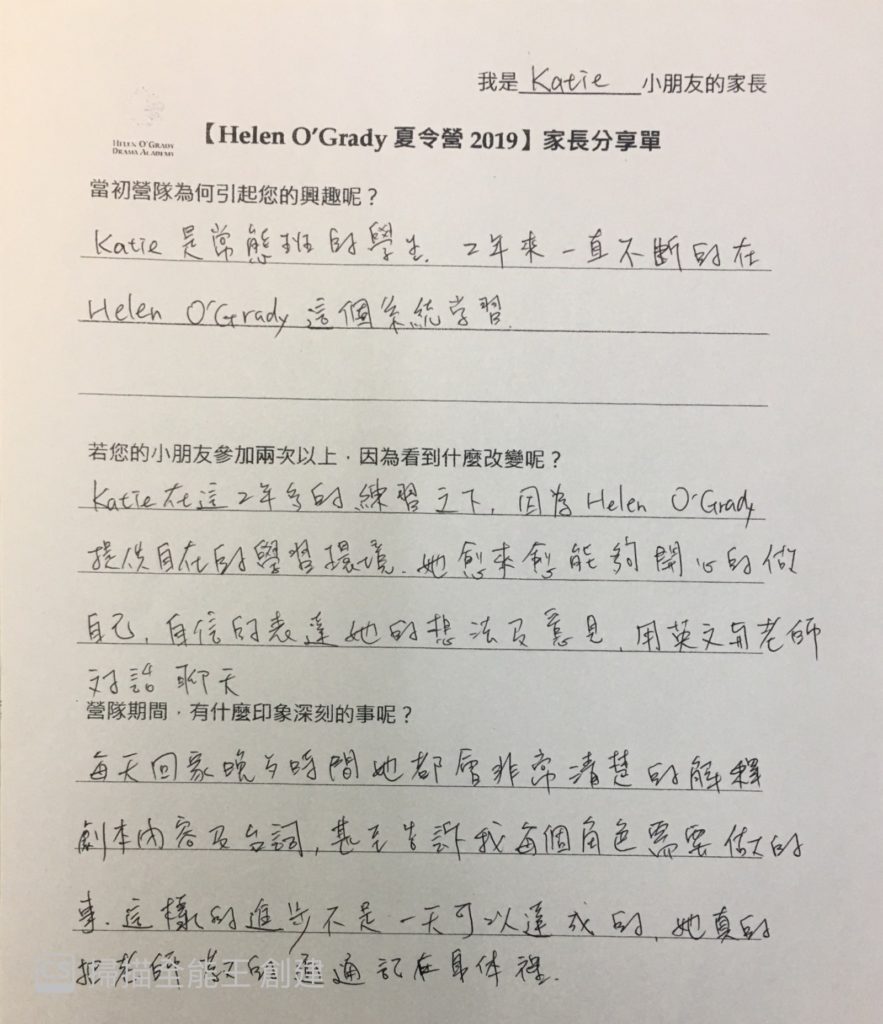 我是 Katie 小朋友的家長
HELEN O'GRADY
DRAMA ACADEMY
【Helen O'Grady 夏令營 2019】家長分享單
當初營隊為何引起您的興趣呢？
Katie 是常態班的學生. 2年來一直不斷的在
Helen O'Grady 這個系統学習.
若您的小朋友參加兩次以上，因為看到什麼改變呢？
Katie在這2年多的練習之下, 因為Helen O'Grady
提供自在的學習環境. 她愈來愈能夠開心的做
自己, 自信的表達她的想法及意見, 用英文與老師
対話聊天
營隊期間，有什麼印象深刻的事呢？
每天回家晚餐時間她都會非常清楚的解釋
劇本內容及台詞, 甚至告訴我每個角色需要做的
事. 這樣的進步不是一天可以達成的, 她真的
把老師教的 通通記在身体裡.
CS 掃描全能王 創建